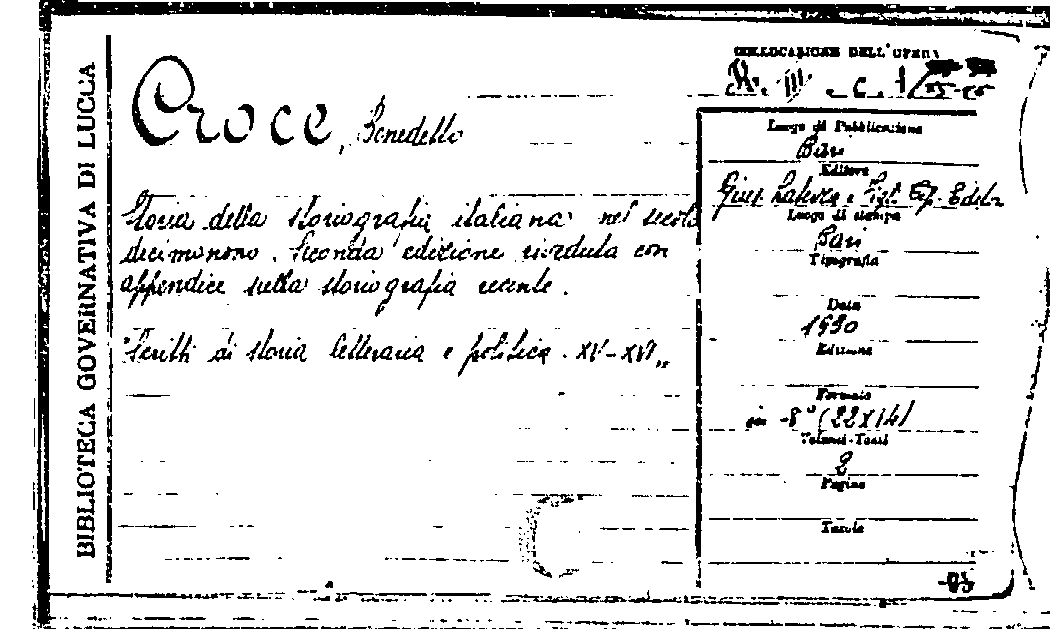 BIBLIOTECA GOVERNATIVA DI LUCCA
COLLOCAZIONE DELL'OPERA
Croce, Benedetto
Storia della storiografia italiana nel secolo
decimonono. Seconda edizione riveduta con
appendice sulla storiografia recente.
"Scritti di storia letteraria e politica. XV-XVI"
Luogo di Pubblicazione
Bari
Editore
Gius. Laterza e Figli Ed.
Luogo di stampa
Bari
Tipografia
Data
1930
Edizione
Formato
in-8° (22X14)
Volumi-Tomi
2
Pagine
Tavole